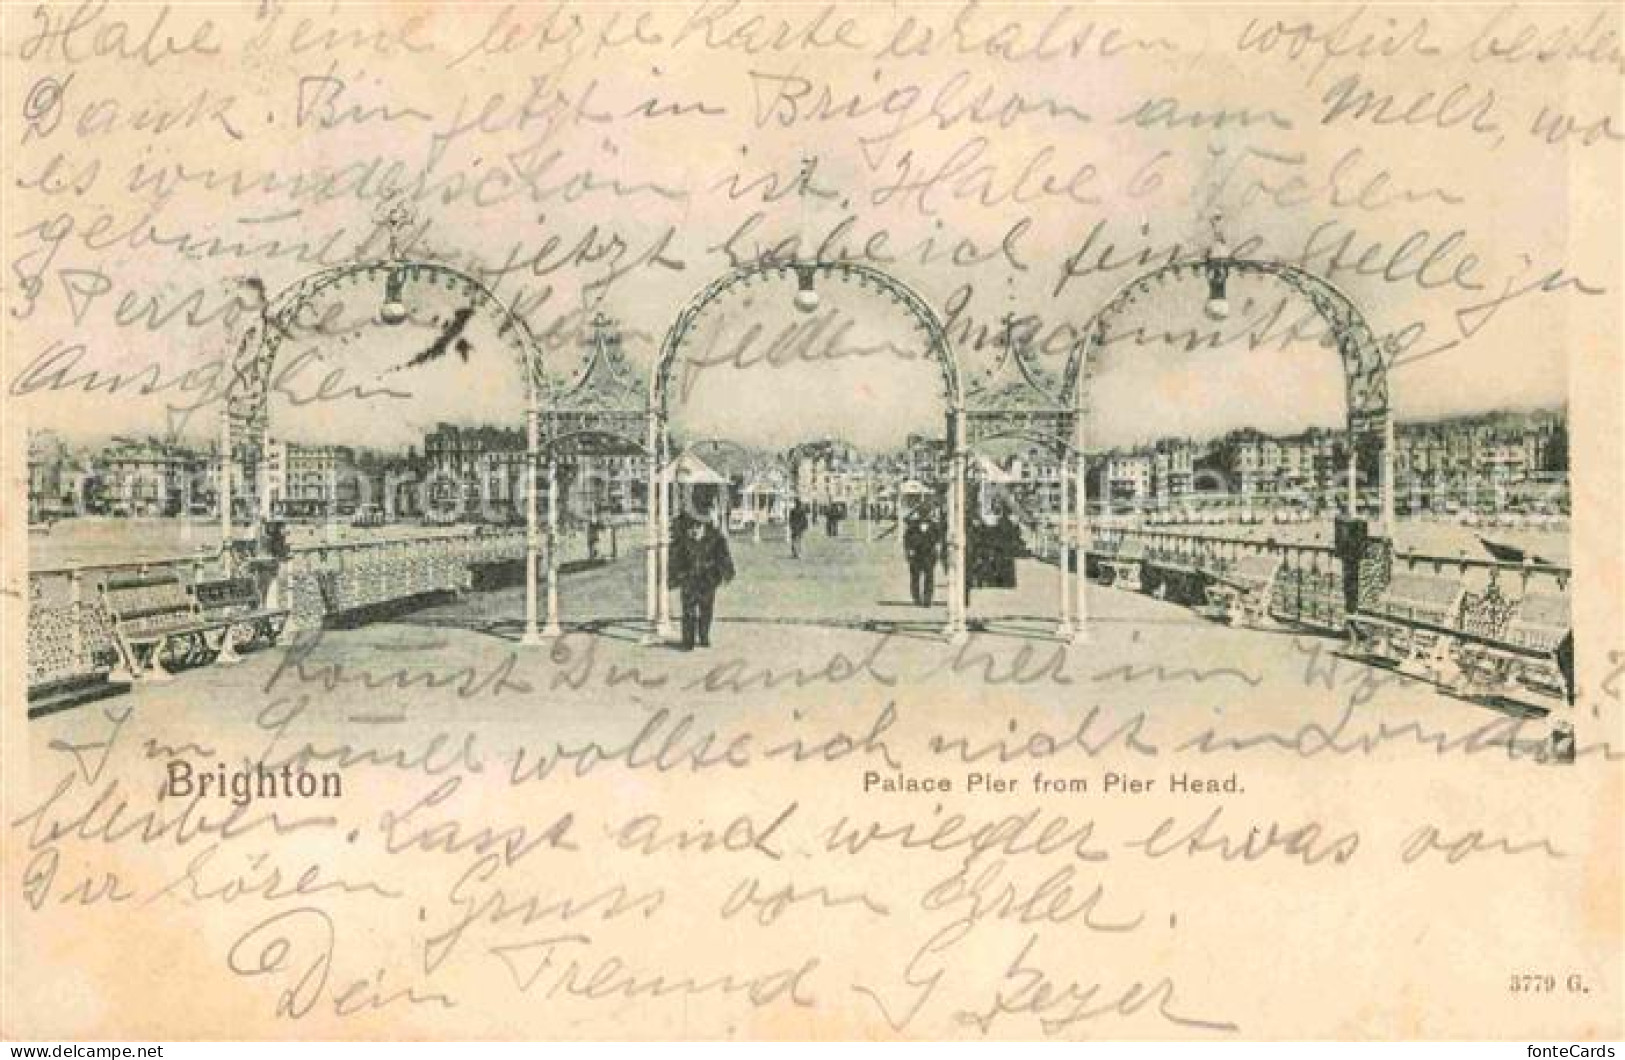 Habe Deine letzte Karte erhalten, wofür besten
Dank. Bin jetzt in Brighton am Meer, wo
es wunderschön ist. Habe 6 Wochen
gebummelt, jetzt habe ich feine Stelle zu
3 Personen. Kann jeden Nachmittag
Ausgehen
Komst Du auch her im
Im Somer wollte ich nicht in London
bleiben. Lasse auch wieder etwas von
Dir hören. Gruss von Ehrler.
Dein Freund G
Brighton
Palace Pier from Pier Head.
3779 G.
fonteCards
www.delcampe.net